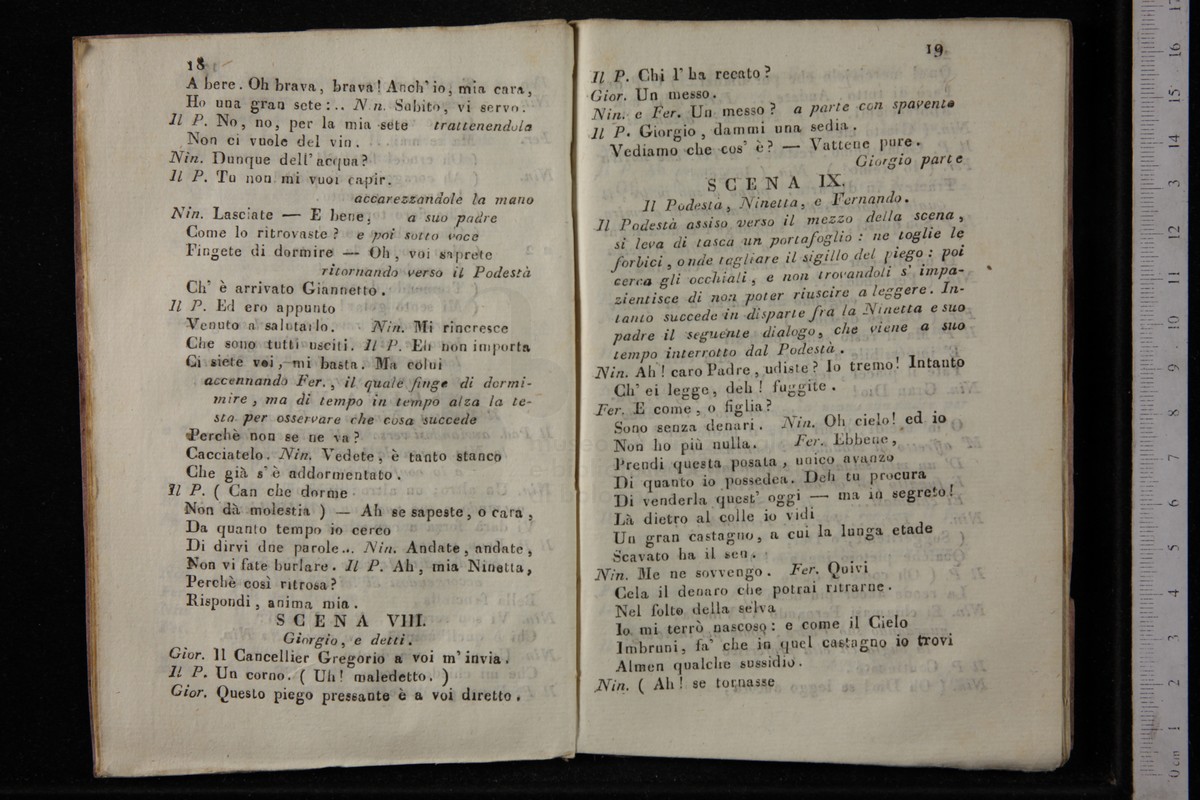 18
A bere. Oh brava, brava! Anch' io, mia cara,
Ho una gran sete:.. Nin. Subito, vi servo.
Il P. No, no, per la mia sete trattenendola
Non ci vuole del vin.
Nin. Dunque dell' acqua?
Il P. Tu non mi vuoi capir.
accarezzandole la mano
Nin. Lasciate — E bene, a suo padre
Come lo ritrovaste? e poi sotto voce
Fingete di dormire — Oh, voi saprete
ritornando verso il Podestà
Ch' è arrivato Giannetto.
Il P. Ed ero appunto
Venuto a salutarlo. Nin. Mi rincresce
Che sono tutti usciti. Il P. Eh non importa
Ci siete voi, mi basta. Ma colui
accennando Fer., il quale finge di dormi-
mire, ma di tempo in tempo alza la te-
sta per osservare che cosa succede
Perchè non se ne va?
Cacciatelo. Nin. Vedete, è tanto stanco
Che già s' è addormentato.
Il P. ( Can che dorme
Non dà molestia ) — Ah se sapeste, o cara,
Da quanto tempo io cerco
Di dirvi due parole... Nin. Andate, andate,
Non vi fate burlare. Il P. Ah, mia Ninetta,
Perchè così ritrosa?
Rispondi, anima mia.
SCENA VIII.
Giorgio, e detti.
Gior. Il Cancellier Gregorio a voi m' invia.
Il P. Un corno. ( Uh! maledetto. )
Gior. Questo piego pressante è a voi diretto.
19
Il P. Chi l' ha recato?
Gior. Un messo.
Nin. e Fer. Un messo? a parte con spavento
Il P. Giorgio, dammi una sedia.
Vediamo che cos' è? — Vattene pure.
Giorgio parte
SCENA IX.
Il Podestà, Ninetta, e Fernando.
Il Podestà assiso verso il mezzo della scena,
si leva di tasca un portafoglio: ne toglie le
forbici, onde tagliare il sigillo del piego: poi
cerca gli occhiali, e non trovandoli s' impa-
zientisce di non poter riuscire a leggere. In-
tanto succede in disparte fra la Ninetta e suo
padre il seguente dialogo, che viene a suo
tempo interrotto dal Podestà.
Nin. Ah! caro Padre, udiste? Io tremo! Intanto
Ch' ei legge, deh! fuggite.
Fer. E come, o figlia?
Sono senza denari. Nin. Oh cielo! ed io
Non ho più nulla. Fer. Ebbene,
Prendi questa posata, unico avanzo
Di quanto io possedea. Deh tu procura
Di venderla quest' oggi — ma in segreto!
Là dietro al colle io vidi
Un gran castagno, a cui la lunga etade
Scavato ha il sen.
Nin. Me ne sovvengo. Fer. Quivi
Cela il denaro che potrai ritrarne.
Nel folto della selva
Io mi terrò nascoso: e come il Cielo
Imbruni, fa' che in quel castagno io trovi
Almen qualche sussidio.
Nin. ( Ah! se tornasse
0 cm 1 2 3 4 5 6 7 8 9 10 11 12 13 14 15 16 17